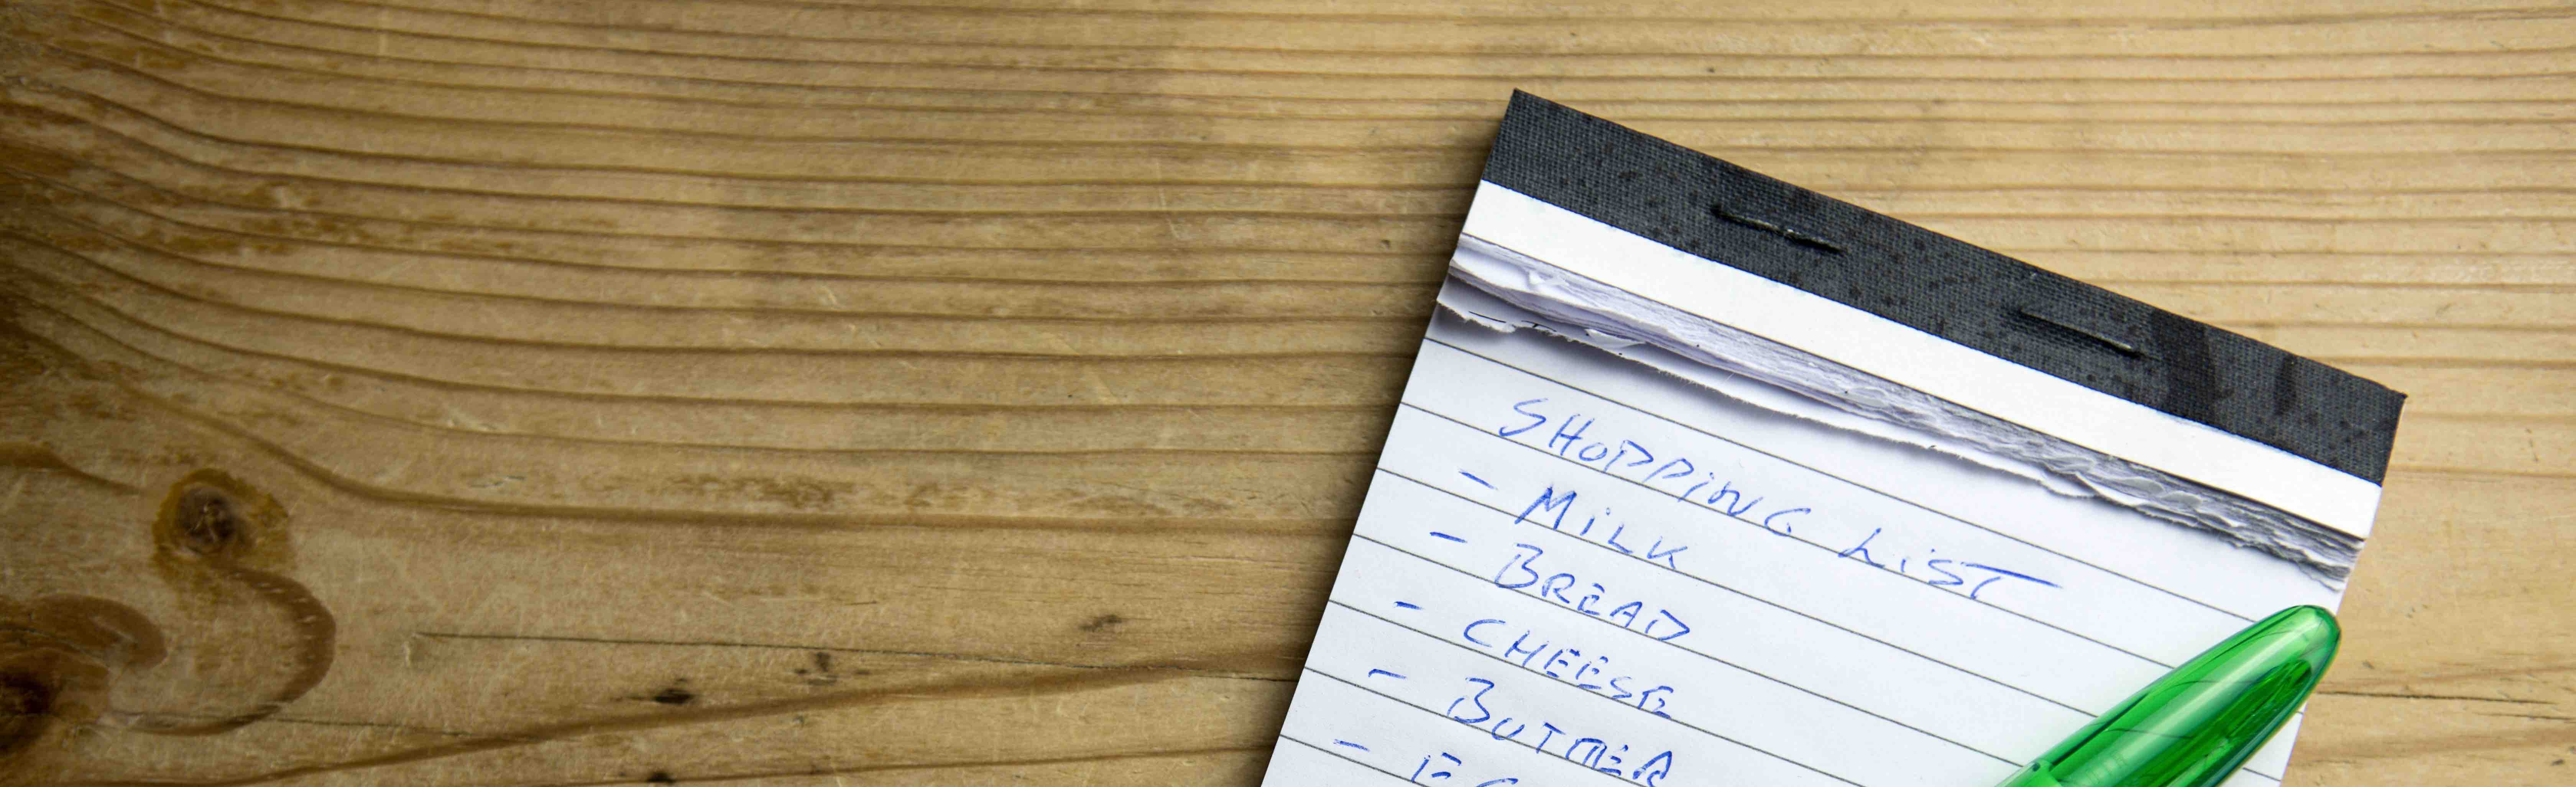 SHOPPING LIST
- MILK
- BREAD
- CHEESE
- BUTTER